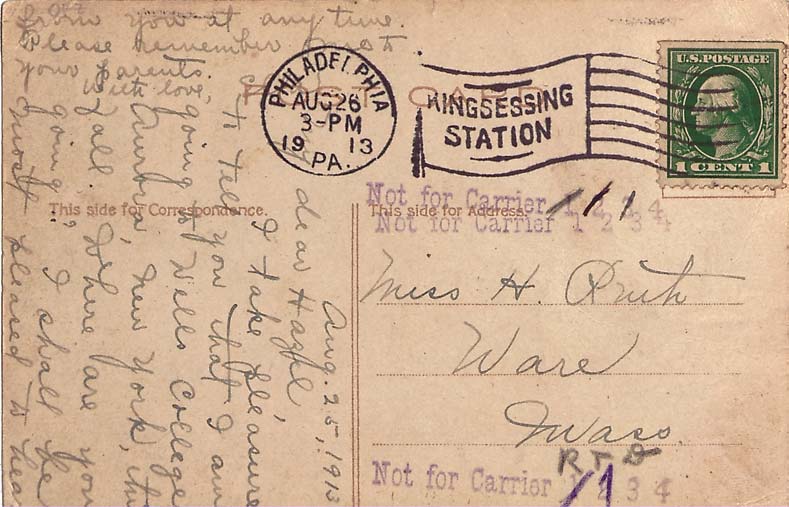 POST CARD
U.S. POSTAGE
1 CENT 1
PHILADELPHIA
AUG 26
3-PM
19 13
PA.
KINGSESSING
STATION
This side for Correspondence.
This side for Address.
Not for Carrier 1 2 3 4
Not for Carrier 1 2 3 4
Miss H. Ruth
Ware
Mass.
Not for Carrier 1 2 3 4
Aug. 25, 1913
dear Hazel,
I take pleasure
to tell you that I am
going to Wells College
Aurora, New York, this
fall. Where are you
going, I shall be
most pleased to hear
from you at any time
Please remember me to
your parents.
With love,